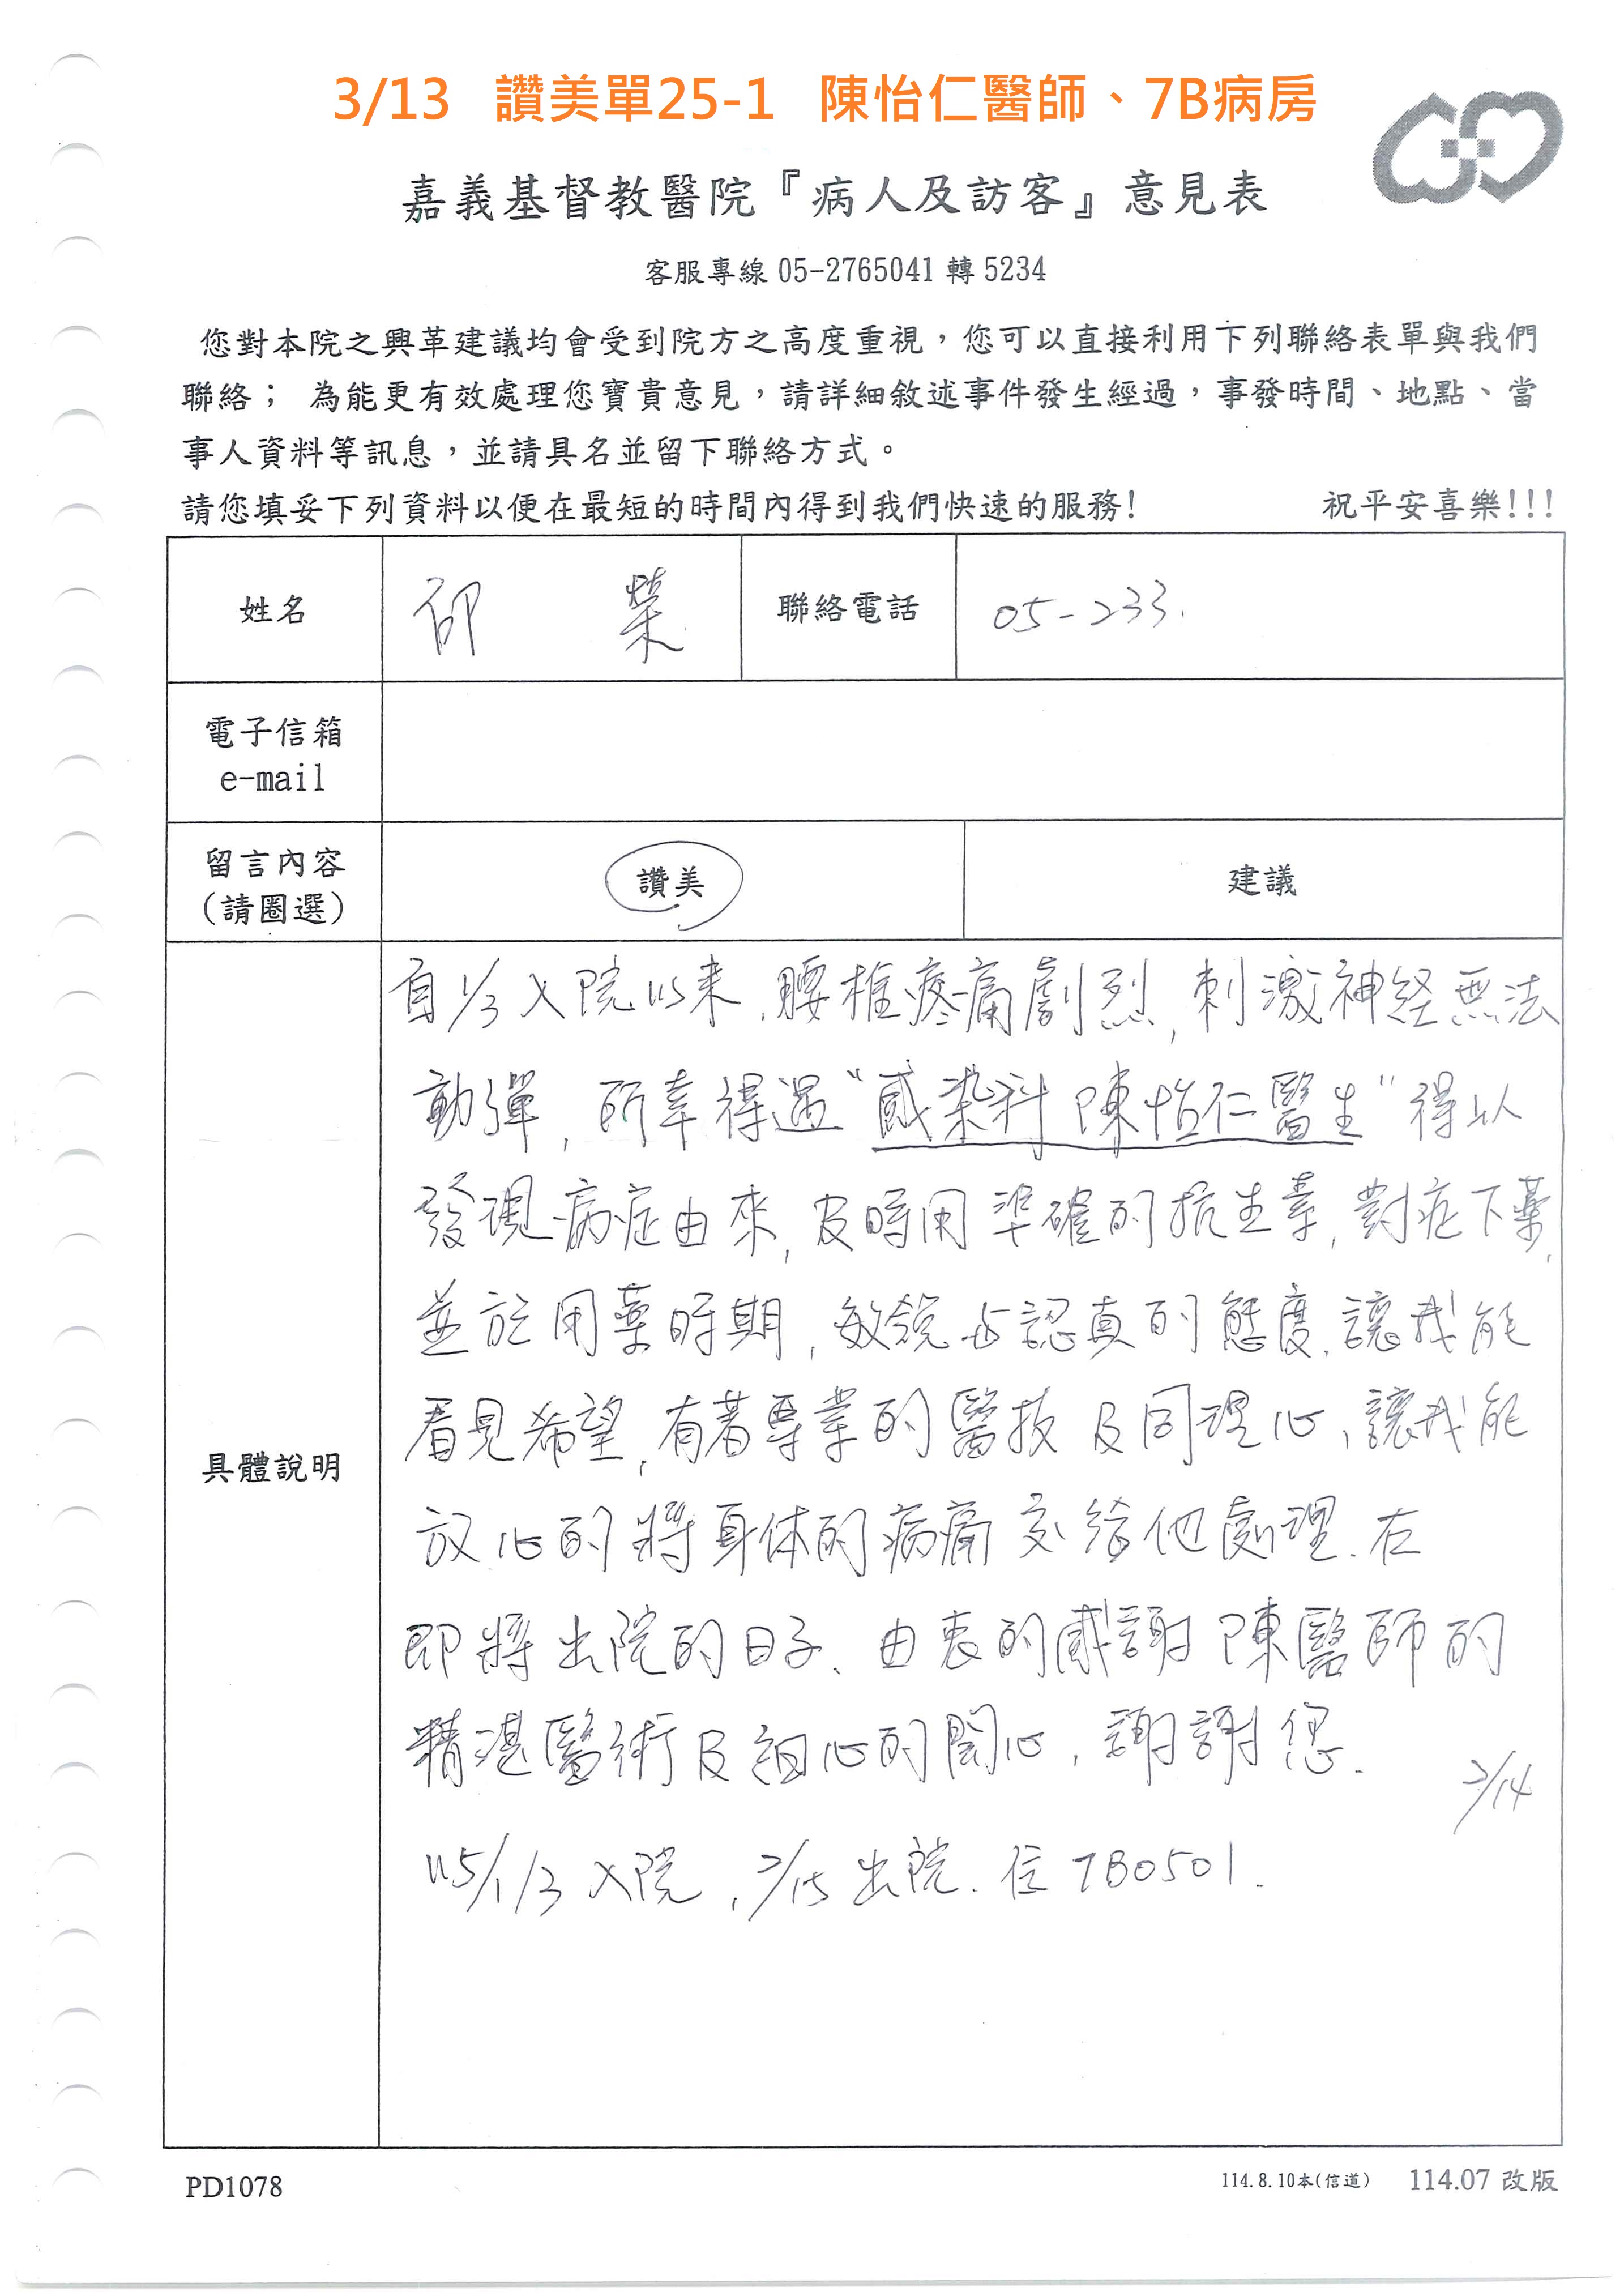 3/13 讚美單25-1 陳怡仁醫師、7B病房
嘉義基督教醫院『病人及訪客』意見表
客服專線 05-2765041 轉 5234
您對本院之興革建議均會受到院方之高度重視，您可以直接利用下列聯絡表單與我們
聯絡； 為能更有效處理您寶貴意見，請詳細敘述事件發生經過，事發時間、地點、當
事人資料等訊息，並請具名並留下聯絡方式。
請您填妥下列資料以便在最短的時間內得到我們快速的服務! 祝平安喜樂!!!
姓名 邱 榮 聯絡電話 05-233.
電子信箱
e-mail
留言內容
(請圈選)
讚美 建議
具體說明
自1/3入院以来，腰椎疼痛劇烈，刺激神経無法
動彈，所幸得遇“感染科陳怡仁醫生”得以
發現病症由來，及時用準確的抗生素，對症下藥，
並於用藥時期，敏銳与認真的態度，讓我能
看見希望，有著專業的醫技及同理心，讓我能
放心的將身体的病痛交給他處理．在
即將出院的日子、由衷的感謝陳醫師的
精湛醫術及細心的関心，謝謝您．
2/14
115/1/3入院，2/15出院．住7B0501.
PD1078
114.8.10本(信道) 114.07 改版